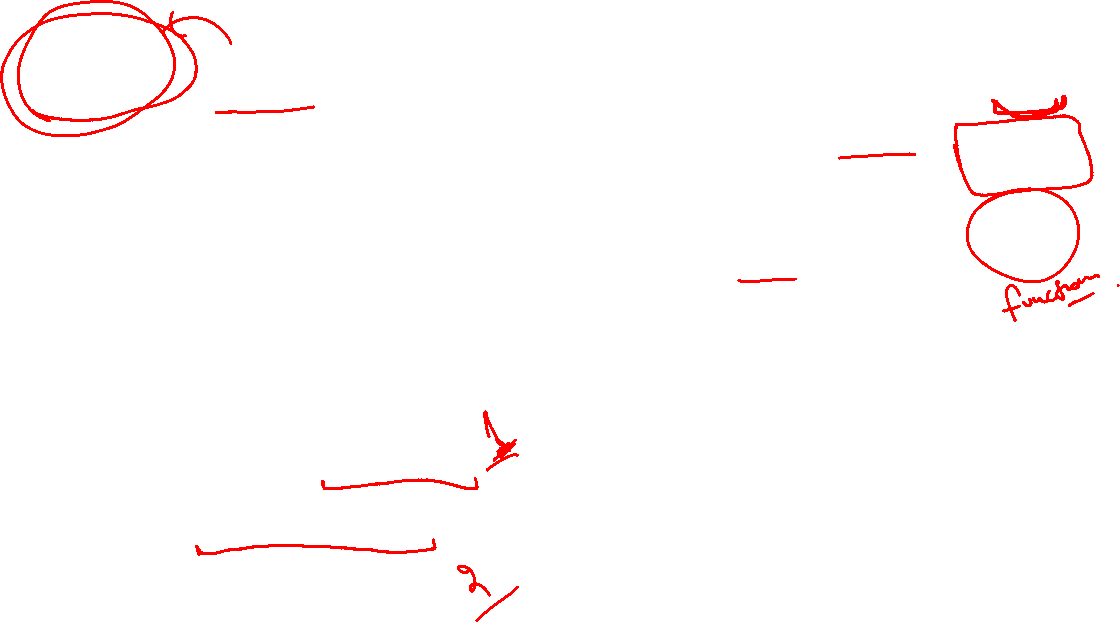 function
2